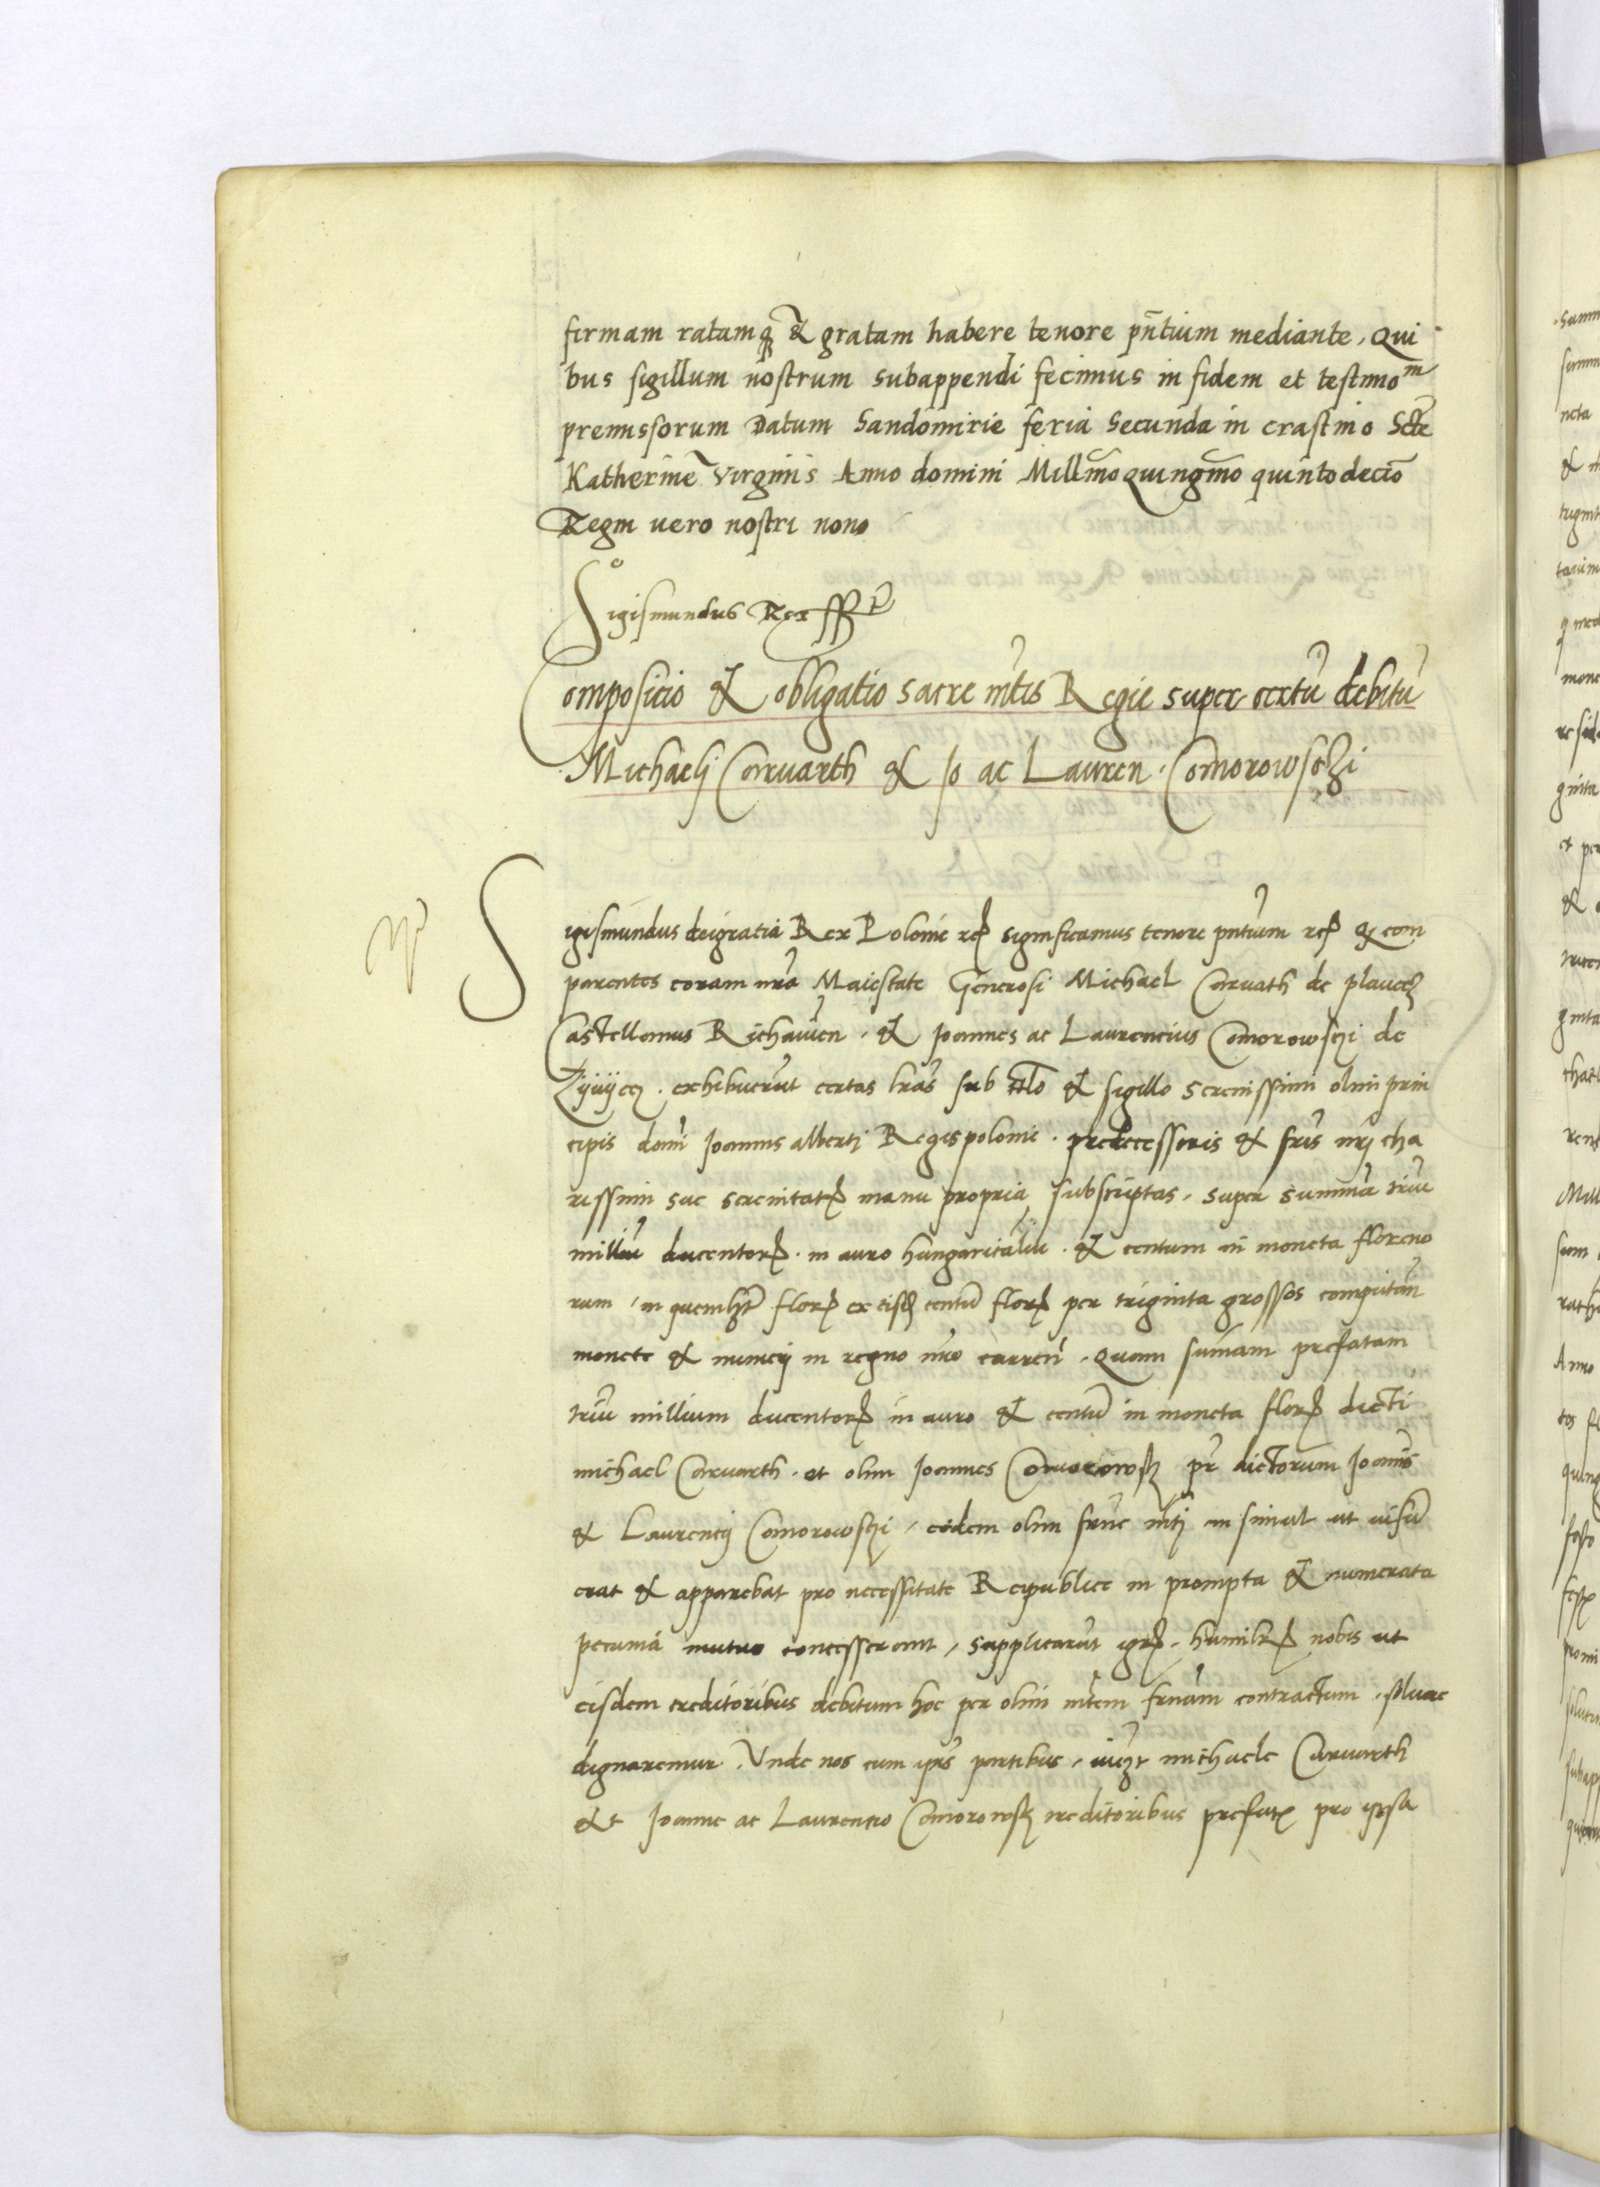 firmam ratamqꝫ & gratam habere tenore pñtium mediante, Qui
bus sigillum nostrum subappendi fecimus in fidem et testimo͏ᵐ
premissorum Datum Sandomirie feria Secunda in crastino Scte
Katherine Virginis Anno domini Millmo Quingmo quintodecio
Regni uero nostri nono
Sigismundus Rex ssᵗ
Composicio & obligatio sacre mtis Regie super certu debitu
Michaeli Carvarth & Jo ac Lauren. Comorowschi
Sigismundus deigratia Rex Polonie rcꝭ significamus tenore pntium rcꝭ Q com
parentes coram nra Maiestate Generosi Michael Carvath de plavecz
Castellanus Richavien. & Joannes ac Laurencius Comorowschi de
Zyvyecz. exhibuerut certas lras sub tlo & sigillo Serenissimi olim prin
cipis domi Joannis alberti Regis polonie. predecessoris & fris nrj cha
rissimi sue serenitatꝭ manu propria subscriptas, super summa triu
milliu ducentorꝝ. in auro hungaricaliu. & centum in moneta floreno
rum, in quemlꝫt florꝝ ex eisdꝫ centu florꝝ per triginta grossos computan
monete & numerj in regno nro curren, Quam sumam prefatam
triu millium ducentorꝝ in auro & centu in moneta florꝝ dicti
michael Carvarth. et olim Joannes Comorowsꝫ pr dictorum Joanis
& Laurencij Comorowschi, eidem olim frne mti in simul ut visu
erat & apparebat pro necessitate Reipublice in prompta & numerata
pecunia mutuo concesserant, supplicarut igrꝭ. humilꝭ nobis ut
eisdem creditoribus debitum hoc per olim mtem frnam contractum, soluere
dignaremur. Unde nos cum ipis partibus, vicꝫt michaele Carvarth
& Joanne ac Laurencio Comorowsꝫ creditoribus prefatꝭ pro ipsa